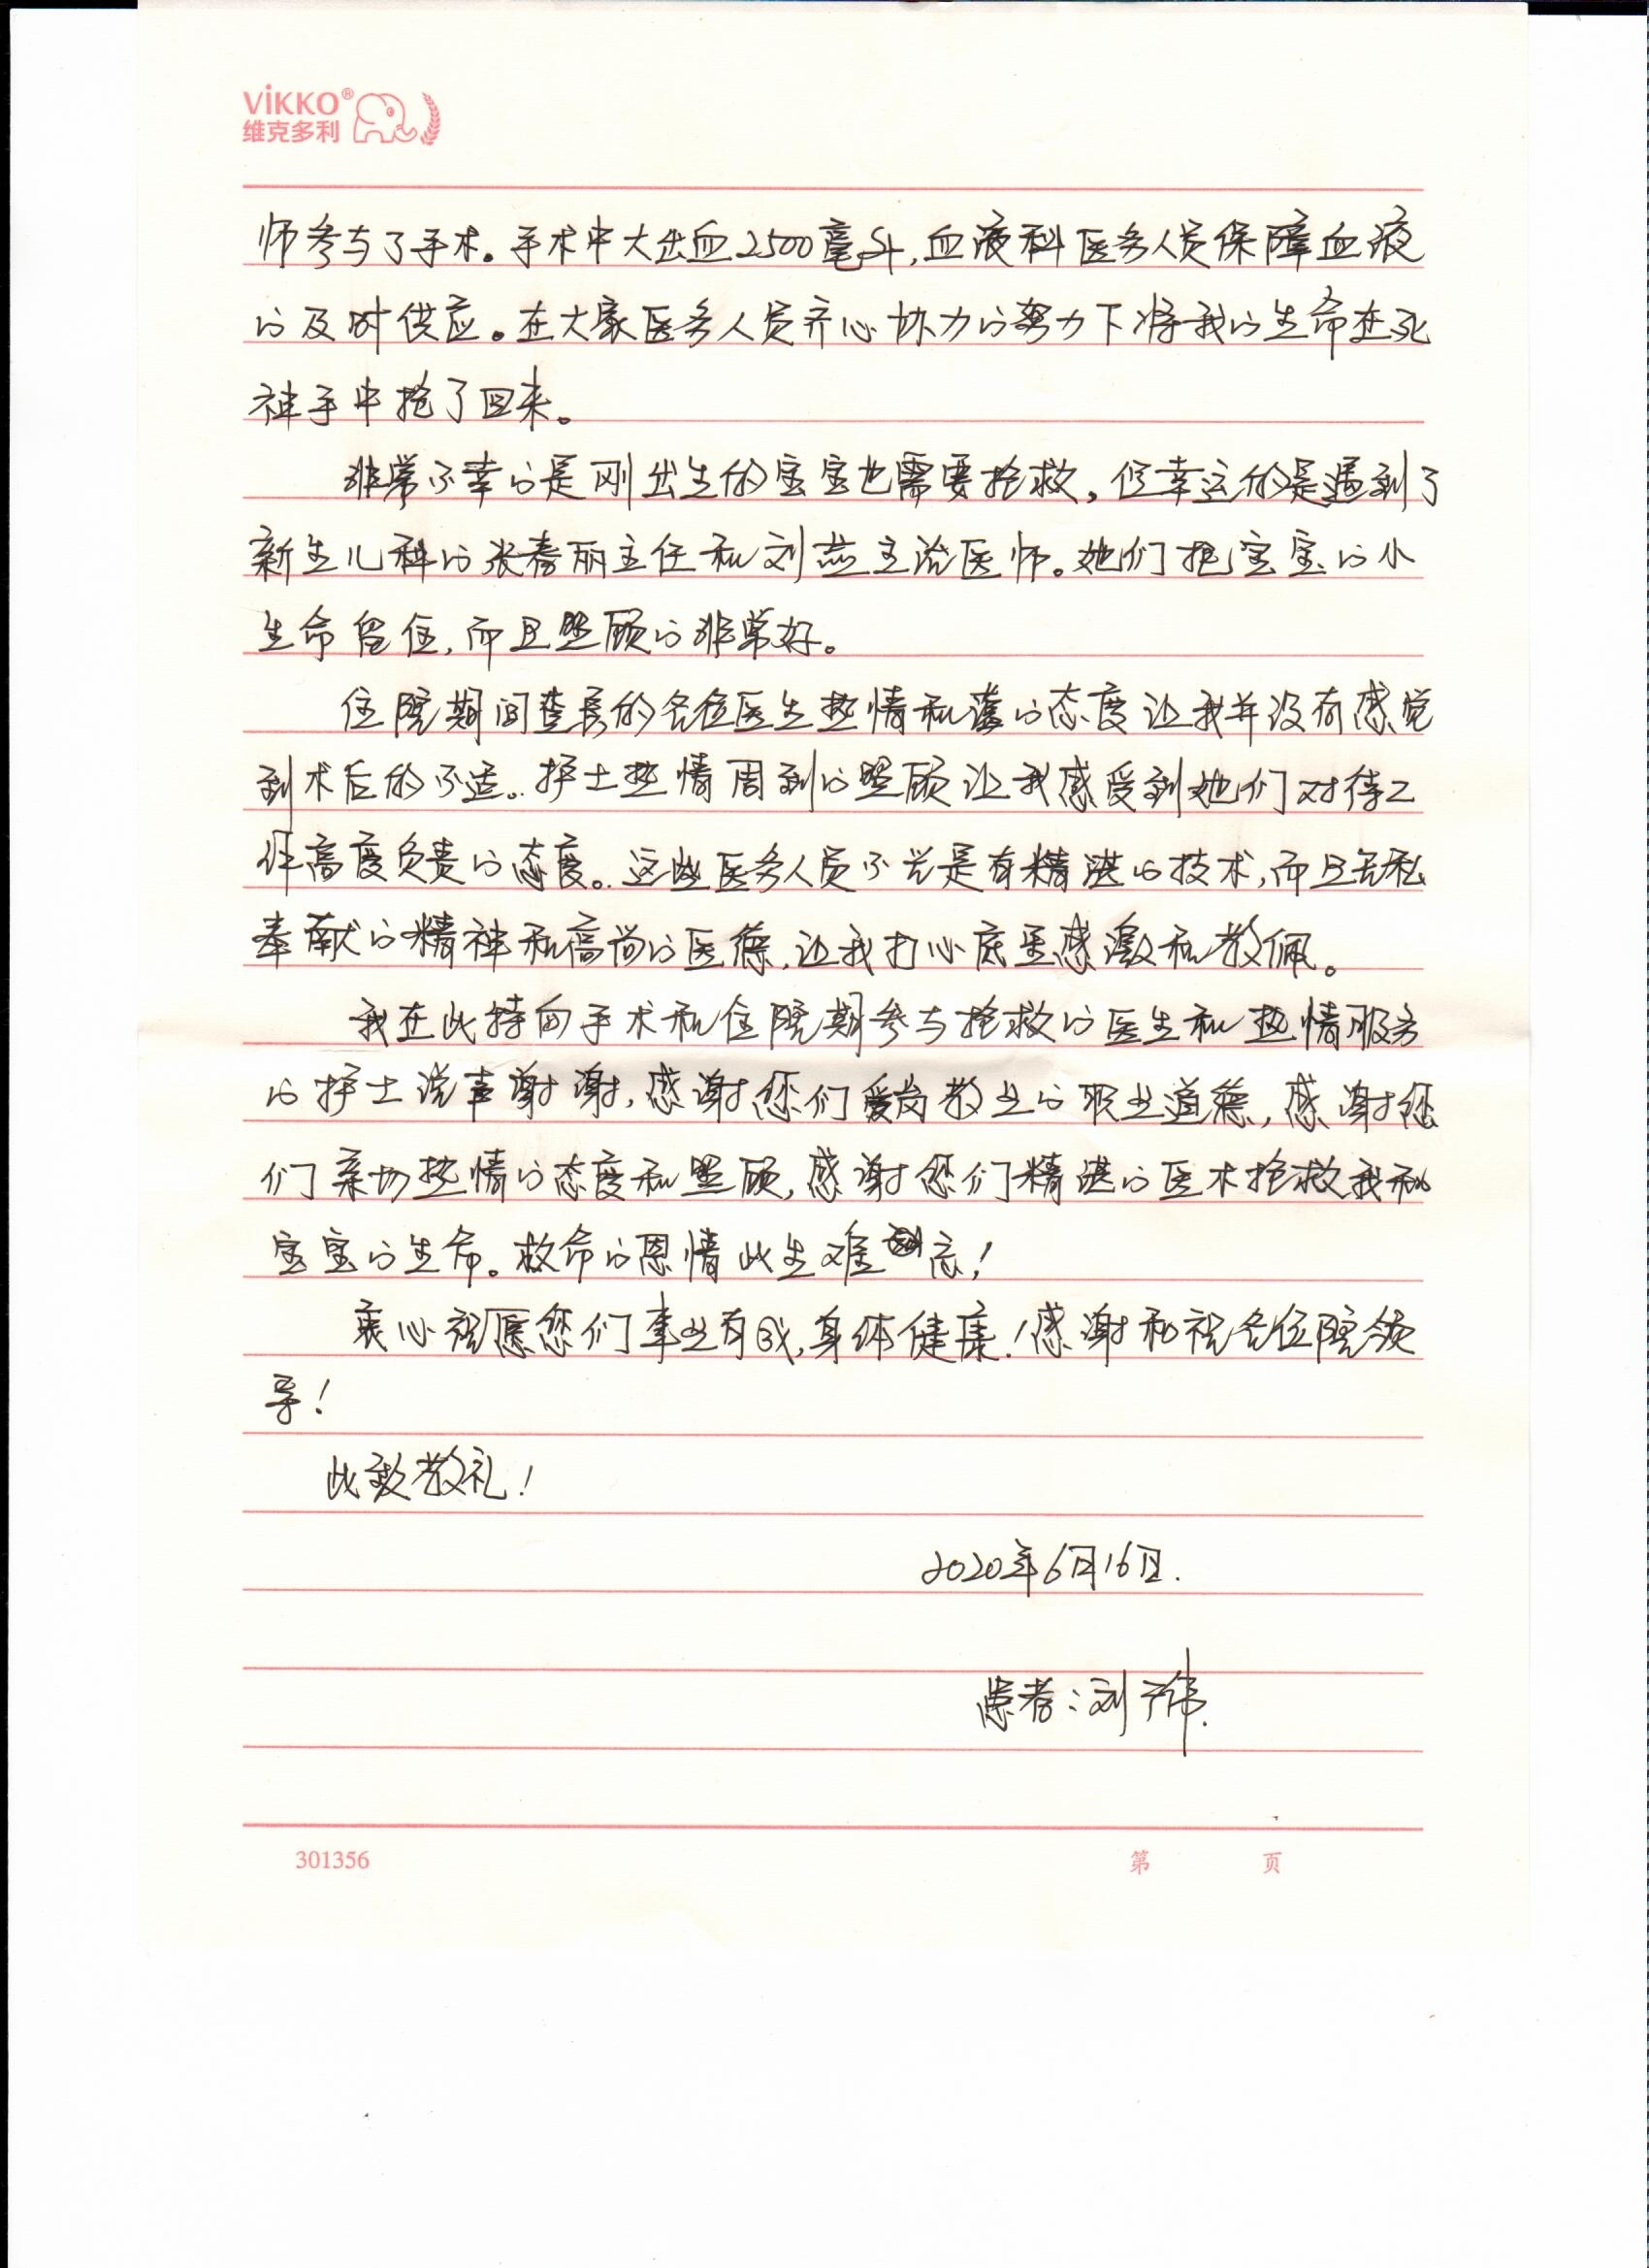 ViKKO®
维克多利
师参与了手术。手术中大出血2500毫升,血液科医务人员保障血液
的及时供应。在大家医务人员齐心协力的努力下将我的生命在死
神手中抢了回来。
非常不幸的是刚出生的宝宝也需要抢救。但幸运的是遇到了
新生儿科的张春丽主任和刘燕主治医师。她们把宝宝的小
生命留住,而且照顾的非常好。
住院期间查房的各位医生热情和蔼的态度让我并没有感觉
到术后的不适。护士热情周到的照顾让我感受到她们对待工
作高度负责的态度。这些医务人员不光是有精湛的技术,而且无私
奉献的精神和高尚的医德,让我打心底里感激和敬佩。
我在此特向手术和住院期参与抢救的医生和热情服务
的护士说声谢谢,感谢您们爱岗敬业的职业道德,感谢您
们亲切热情的态度和照顾,感谢您们精湛的医术抢救我和
宝宝的生命。救命的恩情此生难忘!
衷心祝愿您们事业有成,身体健康!感谢和祝各位院领
导!
此致敬礼!
2020年6月16日.
患者:刘伟.
301356
第 页